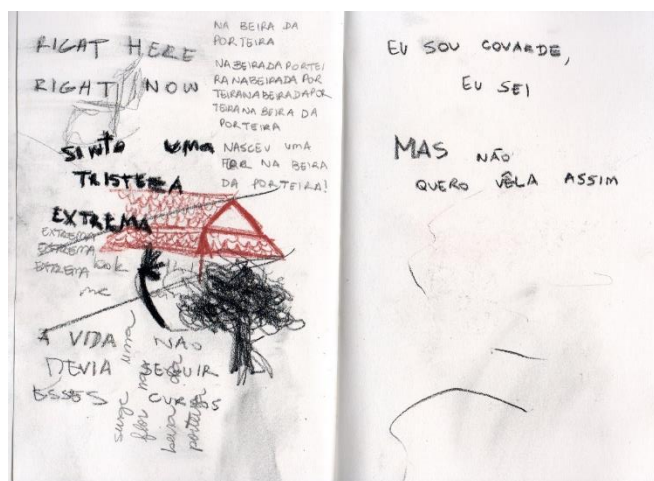 RIGHT HERE
RIGHT NOW
SINTO UMA
TRISTEZA
EXTREMA
EXTREMA
EXTREMA
EXTREMA
look
me
A VIDA NÃO
DEVIA SEGUIR
ESSES CURSOS
surge uma
flor na
beira da
porteira
NA BEIRA DA
PORTEIRA
NABEIRADAPORTEI
RANABEIRADAPOR
TEIRANABEIRADAPOR
TEIRANA BEIRA DA
PORTEIRA
NASCEU UMA
FLOR NA BEIRA
DA PORTEIRA!
EU SOU COVARDE,
EU SEI
MAS NÃO
QUERO VÊLA ASSIM